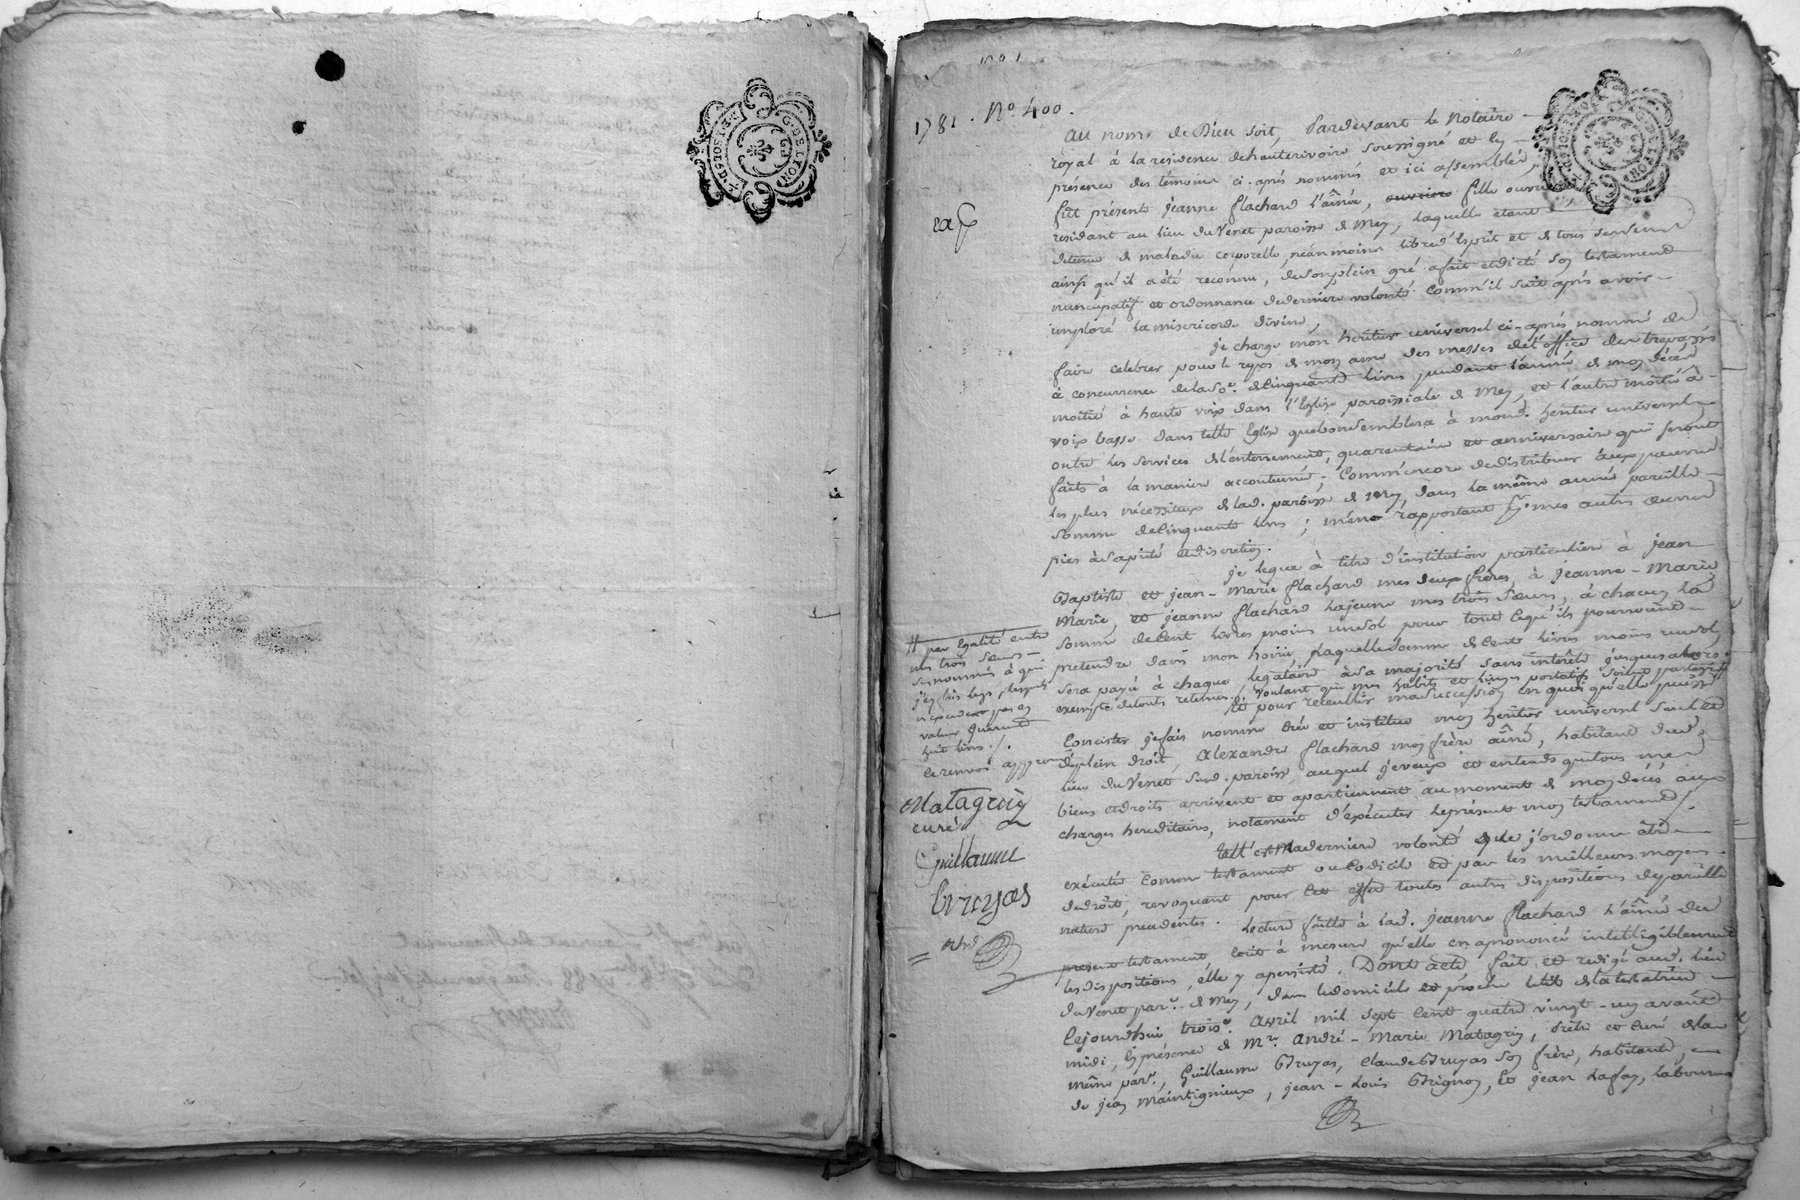 G. DE LYON
2. SOLS 4. D.
1781. No. 400.
exp
Au nom de Dieu soit, Pardevant le notaire
royal à la residence de hauterivoire soussigné et En
présence des témoins ci-après nommés et ici assemblés,
fut présente jeanne flachard l'aînée, ouvriere fille ouvriere
residant au lieu du Venet paroisse de Mey, laquelle étant
detenue de maladie corporelle, néanmoins libre d'Esprit et de tous ses sens
ainsi qu'il a été reconnu, de son plein gré a fait et dicté son testament
nuncupatif et ordonnance de derniere volonté. Comm'il suit après avoir
imploré la misericorde divine,
je charge mon héritier universel ci-après nommé de
faire celebrer pour le repos de mon ame des messes de l'office des trepassés
à concurrence de la so.e de Cinquante livres pendant l'année de mon décès
moitié à haute voix dans l'Eglise paroissiale de Mey, et l'autre moitié à
voix basse dans telle Eglise que bon semblera à mond. heritier universel
outre les services de l'enterrement, quarantaine et anniversaire qui seront
faits à la maniere accoutumée; Comm'encore de distribuer aux pauvres
les plus nécessiteux de lad. paroisse de Mey, dans la même année pareille
somme de Cinquante livres; même rapportant p.r mes autres œuvres
pies à sa piété et discretion.
je legue à titre d'institution particuliere à jean
Baptiste et jean-Marie flachard mes deux frères, à jeanne-Marie
Marie, et jeanne flachard lajeune mes trois Sœurs, à chacun la
somme de Cent livres moins un sol pour tout ce qu'ils pourroient
pretendre dans mon hoirie laquelle somme de Cent livres moins un sol
sera payée à chaque legataire à sa majorité sans intérêts jusques alors
exempte de touts retenues. voulant que mes habits et linges portatifs soient partagés //
Et pour recueillir ma succession en quoi qu'elle puisse
Consister je fais nomme crée et institue mon heritier universel seul et
de plein droit, Alexandre flachard mon frère aîné, habitant aud.
lieu du Venet sud. paroisse, auquel je veux et entends que tous mes
biens et droits arrivent et apartiennent au moment de mon décès aux
charges hereditaires, notament d'exécuter le présent mon testament.
Tell' est Ma derniere volonté que j'ordonne être
exécutée comme testament ou Codicile et par les meilleurs moyens
de droit, revoquant pour cet effet toutes autres dispositions de pareille
nature precedentes. Lecture faitte à lad. jeanne flachard l'aînée du
present testament écrit à mesure qu'elle en a prononcé intelligiblement
les dispositions, elle y a persisté. Dont acte fait et redigé aud. lieu
du Venet par.e de Mey, dans le domicile et proche le lit de la testatrice
Cejourd'hui trois.e avril mil sept Cent quatre vingt-un avant
midi, En présence de Mr. André-Marie Matagrin, Prêtre et Curé de la
même par.e, Guillaume Bruyas, Claude Bruyas son frère, habitants,
de jean Maintigneux, jean-Louis Brignon, Et jean Lafay, laboureurs
// par egalité entre
mes trois sœurs
susnommées à qui
j'en fais legs, lesquels
n'excedent pas en
valeur Quarante
huit livres ./.
le renvoi approuvé
Matagrin
curé
Guillaume
bruyas